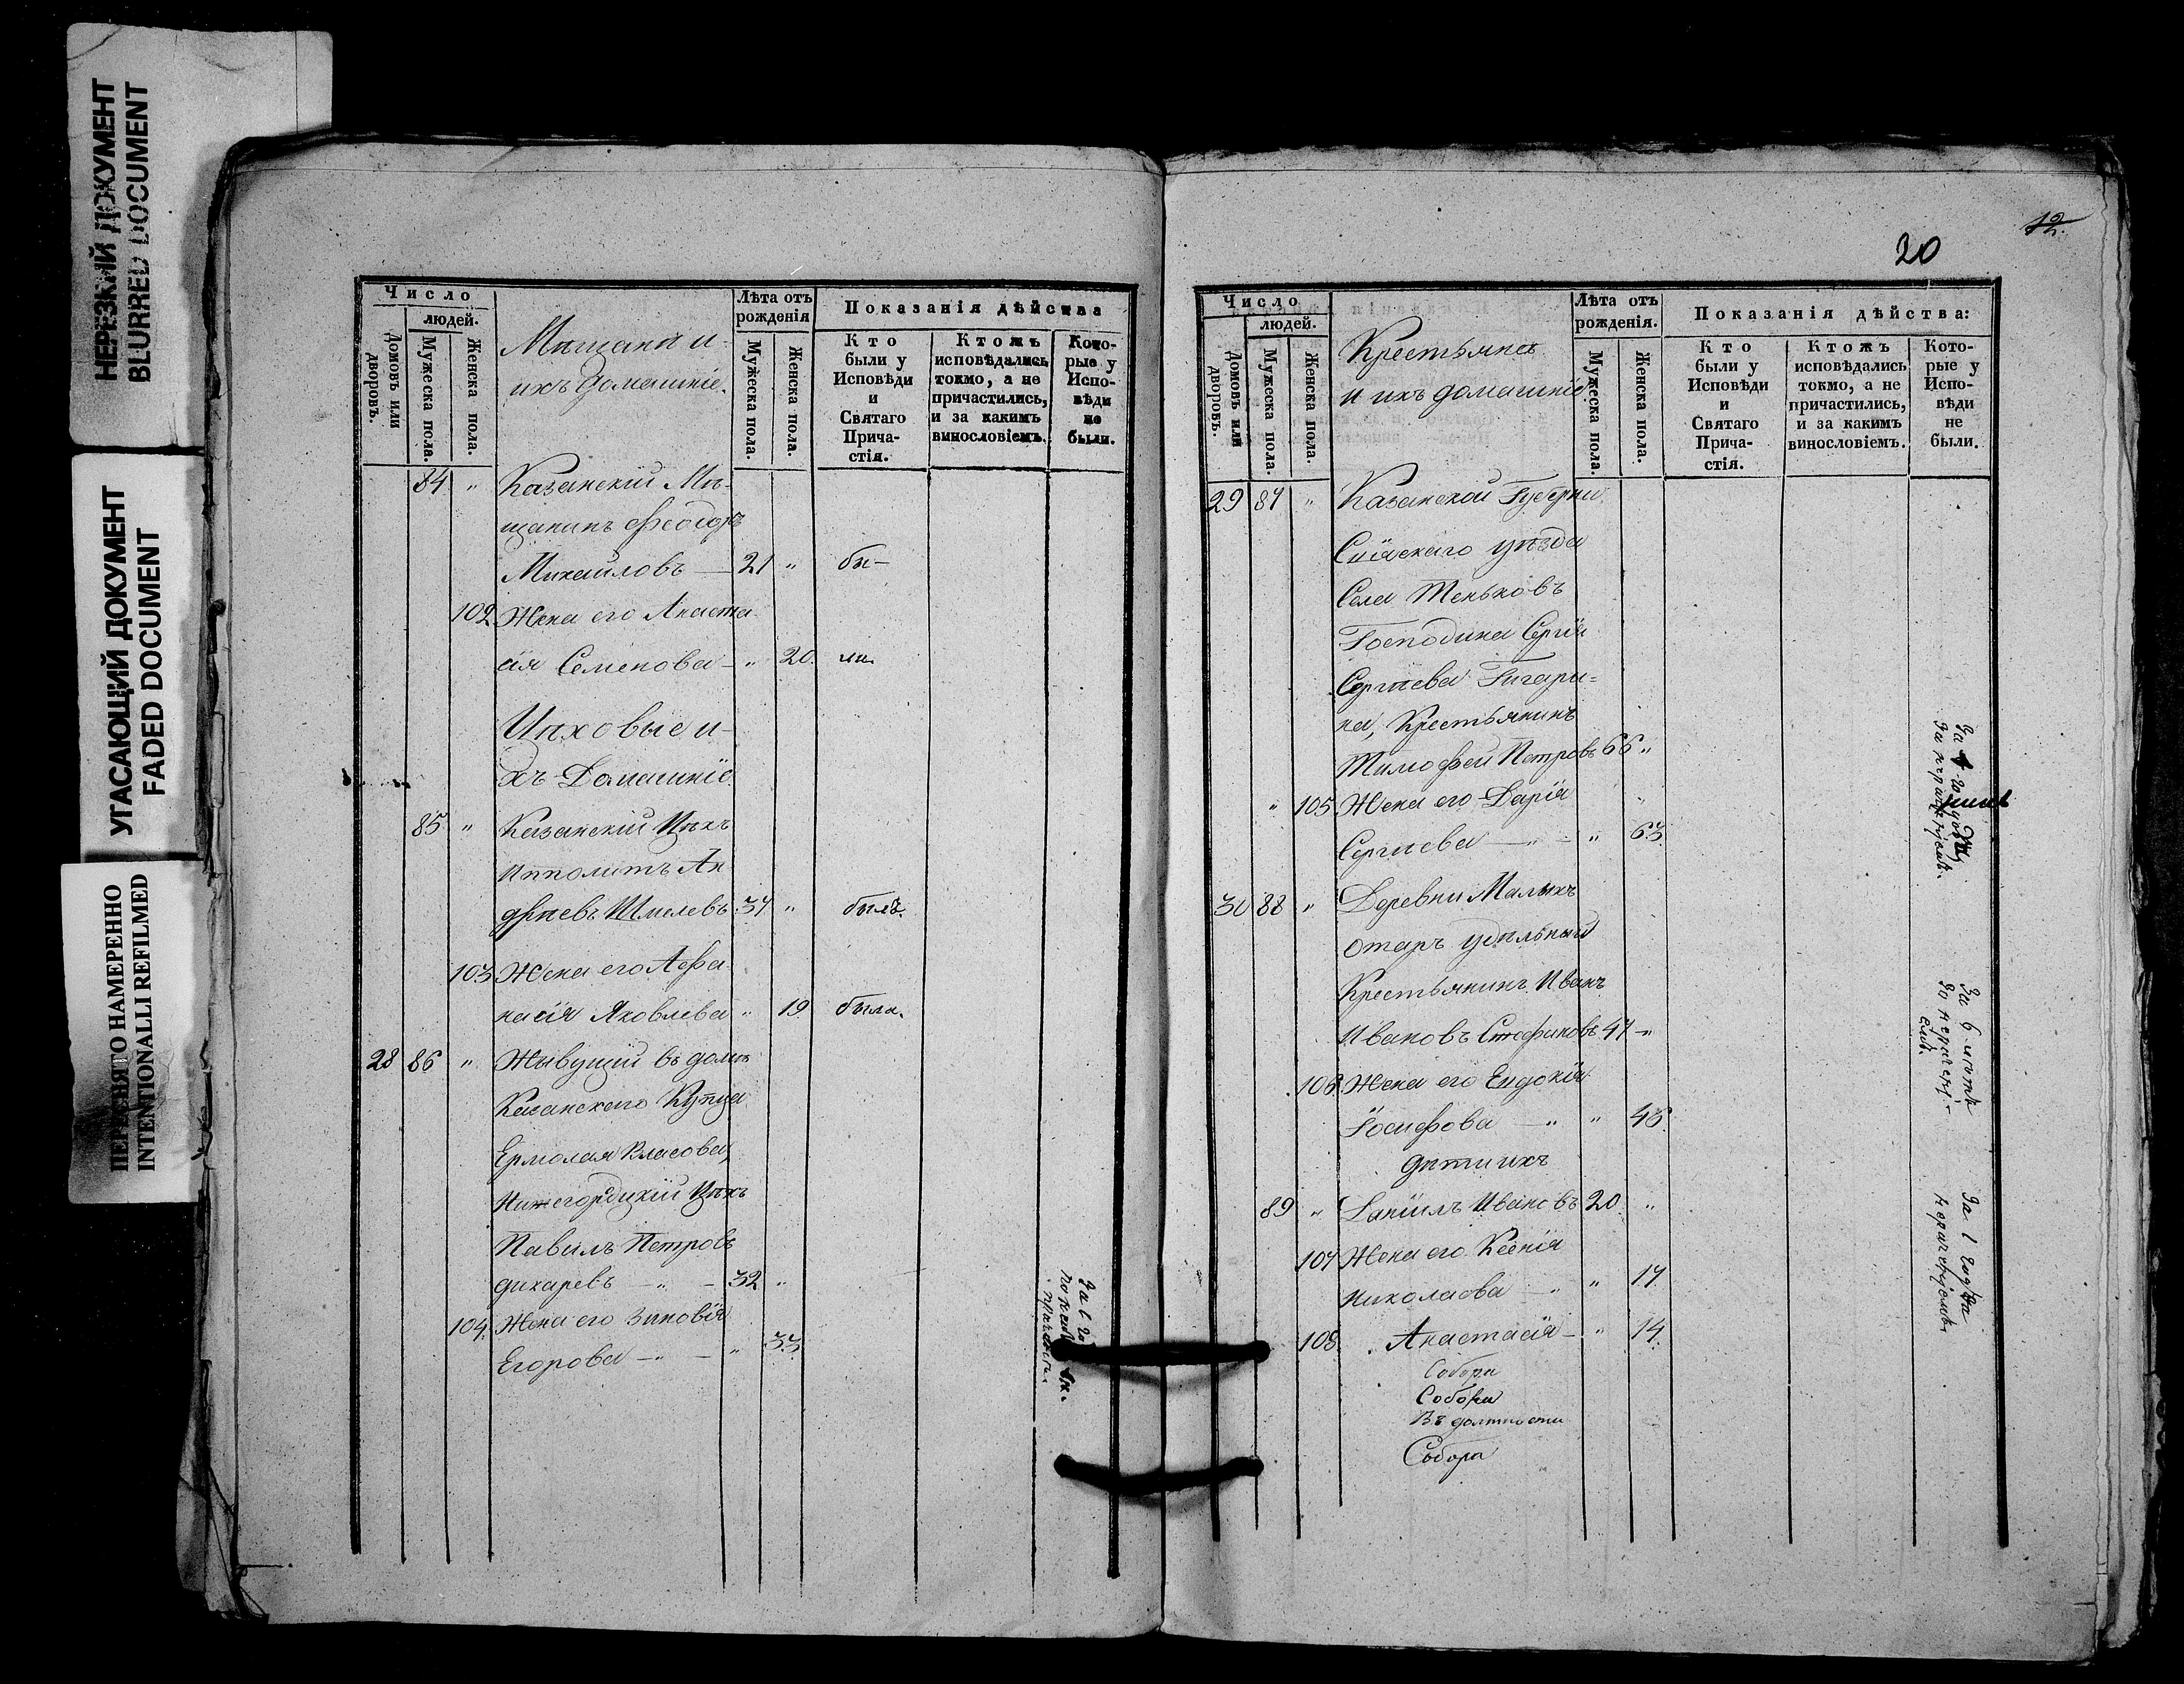 НЕРЕЗКИЙ ДОКУМЕНТ
BLURRED DOCUMENT
УГАСАЮЩИЙ ДОКУМЕНТ
FADED DOCUMENT
ПЕРЕСНЯТО НАМЕРЕННО
INTENTIONALLI REFILMED
Число
людей.
Домовъ или дворовъ.
Мужеска пола.
Женска пола.
Мѣщане и
ихъ домашніе.
Лѣта отъ
рожденія
Мужеска пола.
Женска пола.
Показанія дѣйства
Кто
были у
Исповѣди
и
Святаго
Прича-
стія.
Ктожъ
исповѣдались
токмо, а не
причастились,
и за какимъ
винословіемъ.
Кото-
рые у
Испо-
вѣди
не
были.
84 " Казанскій Мѣ-
щанинъ Феодоръ
Михайловъ — 21 " бы-
102 Жена его Анаста
сія Семенова — " 20. ли.
Цѣховые и-
хъ Домашніе
85 " Казанскій Цѣхъ
Ипполитъ Ан
дреевъ Шмелевъ 37 " былъ.
103 Жена его Афа
насія Яковлева " 19 была.
28 86 " Живущій въ домѣ
Казанскаго Купца
Ермолая Власова,
Нижегородцкій Цѣхъ
Павелъ Петровъ
дихаревъ — " — 32 "
104. Жена его Зиновія
Егорова — " — " 33
12.
20
Число
людей.
Домовъ или дворовъ.
Мужеска пола.
Женска пола.
Крестьяне
и ихъ домашніе
Лѣта отъ
рожденія.
Мужеска пола.
Женска пола.
Показанія дѣйства:
Кто
были у
Исповѣди
и
Святаго
Прича-
стія.
Ктожъ
исповѣдались
токмо, а не
причастились,
и за какимъ
винословіемъ.
Кото-
рые у
Испо-
вѣди
не
были.
29 87 " Казанской Губерніи
уѣзда
Села Теньковъ
Господина Сергія
Сергѣева Гагари=
на, Крестьянинъ
Тимофей Петровъ 66 "
" 105 Жена его Дарія
Сергиева — " — " 63.
30 88 " Деревни Малыхъ
Отаръ удѣльный
Крестьянинъ Иванъ
Ивановъ Стефановъ 47 — "
106. Жена его Евдокія
Іосифова — " " 45
дѣти ихъ
89 " Даніилъ Ивановъ 20 "
107 Жена его Ксенія
Николаева — " " 17.
108. Анастасія — " 14.
Собора
Собора
Въ должности
Собора
За 6 лѣтъ